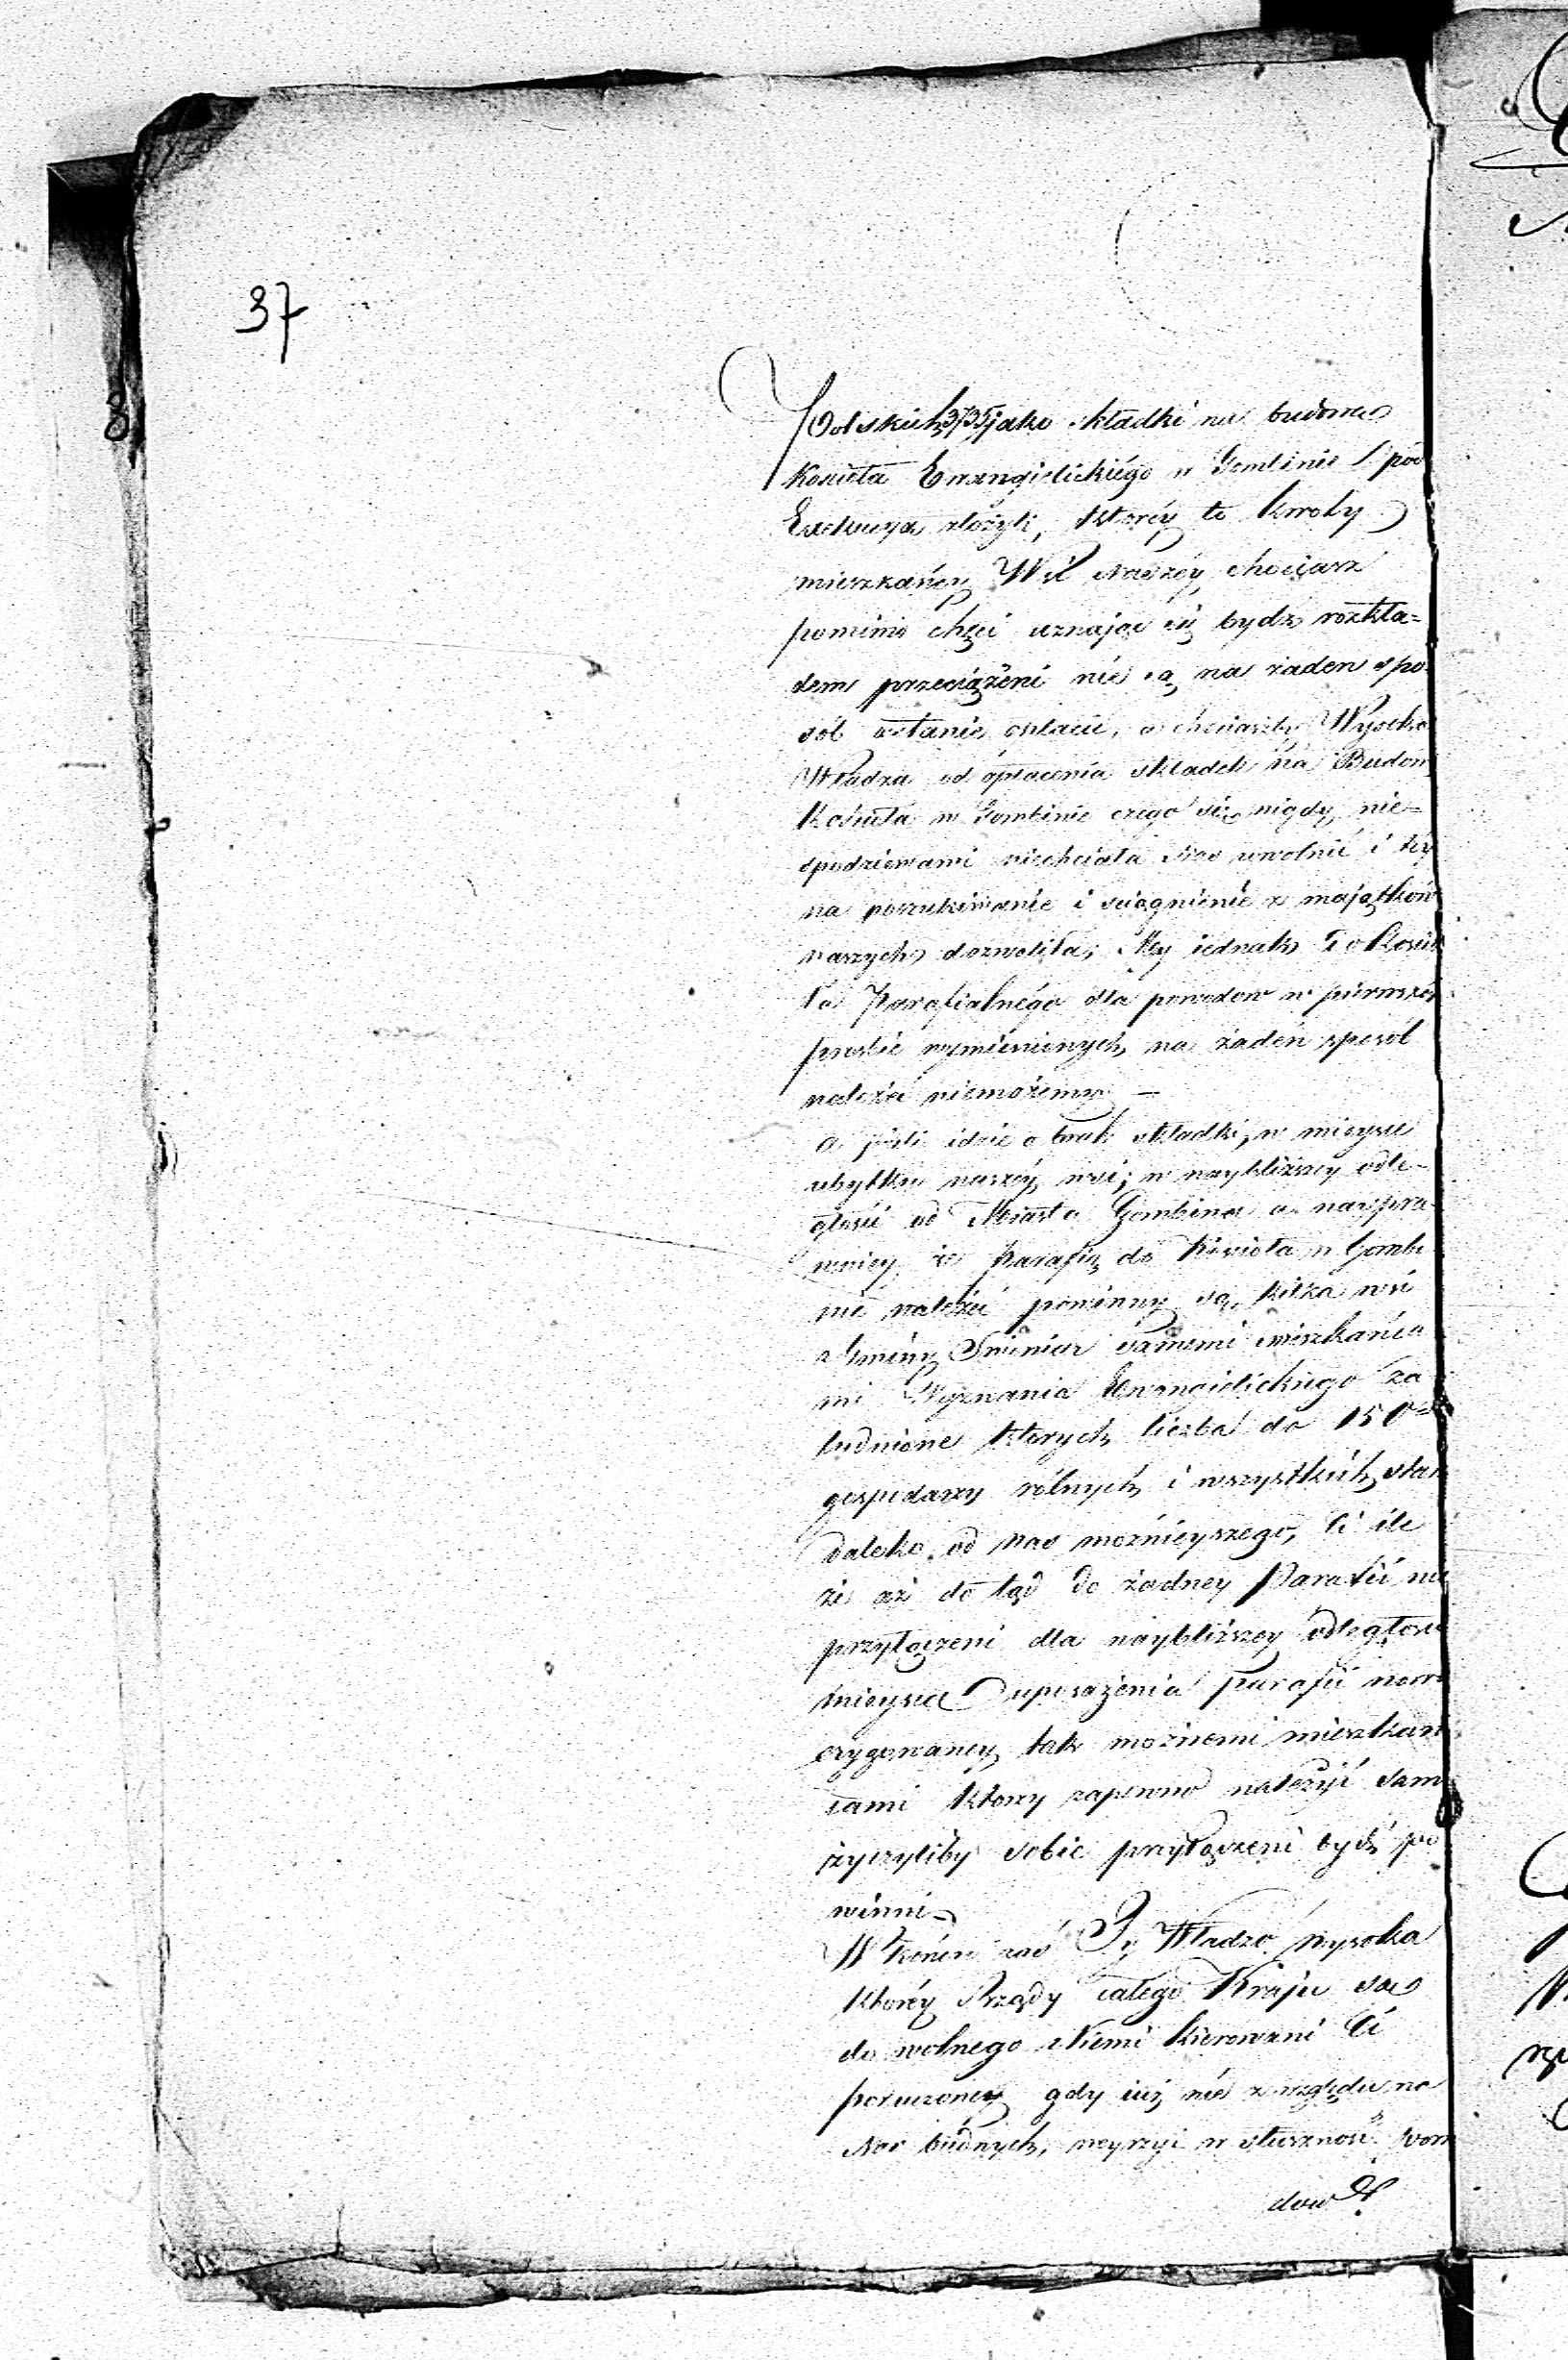 37
Polskich 3735 jako składki na budowę
Kościoła Ewangielickiégo w Gombinie pod
Exekucyą złożyli, któréy to kwoty
mieszkańcy Wsi Naszéy, chociarz
pomimo chęci uznając się bydz rozkła=
dem przeciążeni nie są na żaden spo
sób wstanie opłacić, a chociarzby Wysoka
Władza od opłacenia składek na Budow
Kościoła w Gombinie czego się nigdy nie=
spodziewami niechciała Nas uwolnić i téy
na poszukiwanie i sciągnienie z majątków
naszych dozwoliła; My iednak do Kościo
ła Parafialnégo dla powodow w pierwszéy
prosbie wymienionych na żaden sposób
należeć niemożemy —
a jeśli idzie o brak składki, w mieysce
ubytku naszéy wsi; w naybliższey odle-
głości od Miasta Gombina a nayspra-
wniey że Parafią do Kościoła w Gombi
nie należeć powinny są kilka wsi
z Gminy Świniar samemi mieszkańca
mi Wyznania Ewangielickiego za
ludnione których liczba do 150
gospodarzy rólnych i wszystkich stan
daleko od nas możnieyszego, Ci ile
że aż do tąd do żadney Parafii nie
przyłączeni dla naybliższey odległości
mieysca uposażenia parafii nowo
erygowaney, tak możnemi mieszkań
cami którzy zapewno należyć sami
życzyliby sobie przyłączeni bydź po
winni
W końcu zaś Ty Władzo wysoka
któréy Rządy całego Kraju są
do wolnego Niemi kierowani Ci
poruczoney gdy iuż nie z względu na
Nas biednych, weyrzyi w słuszność powo
dow